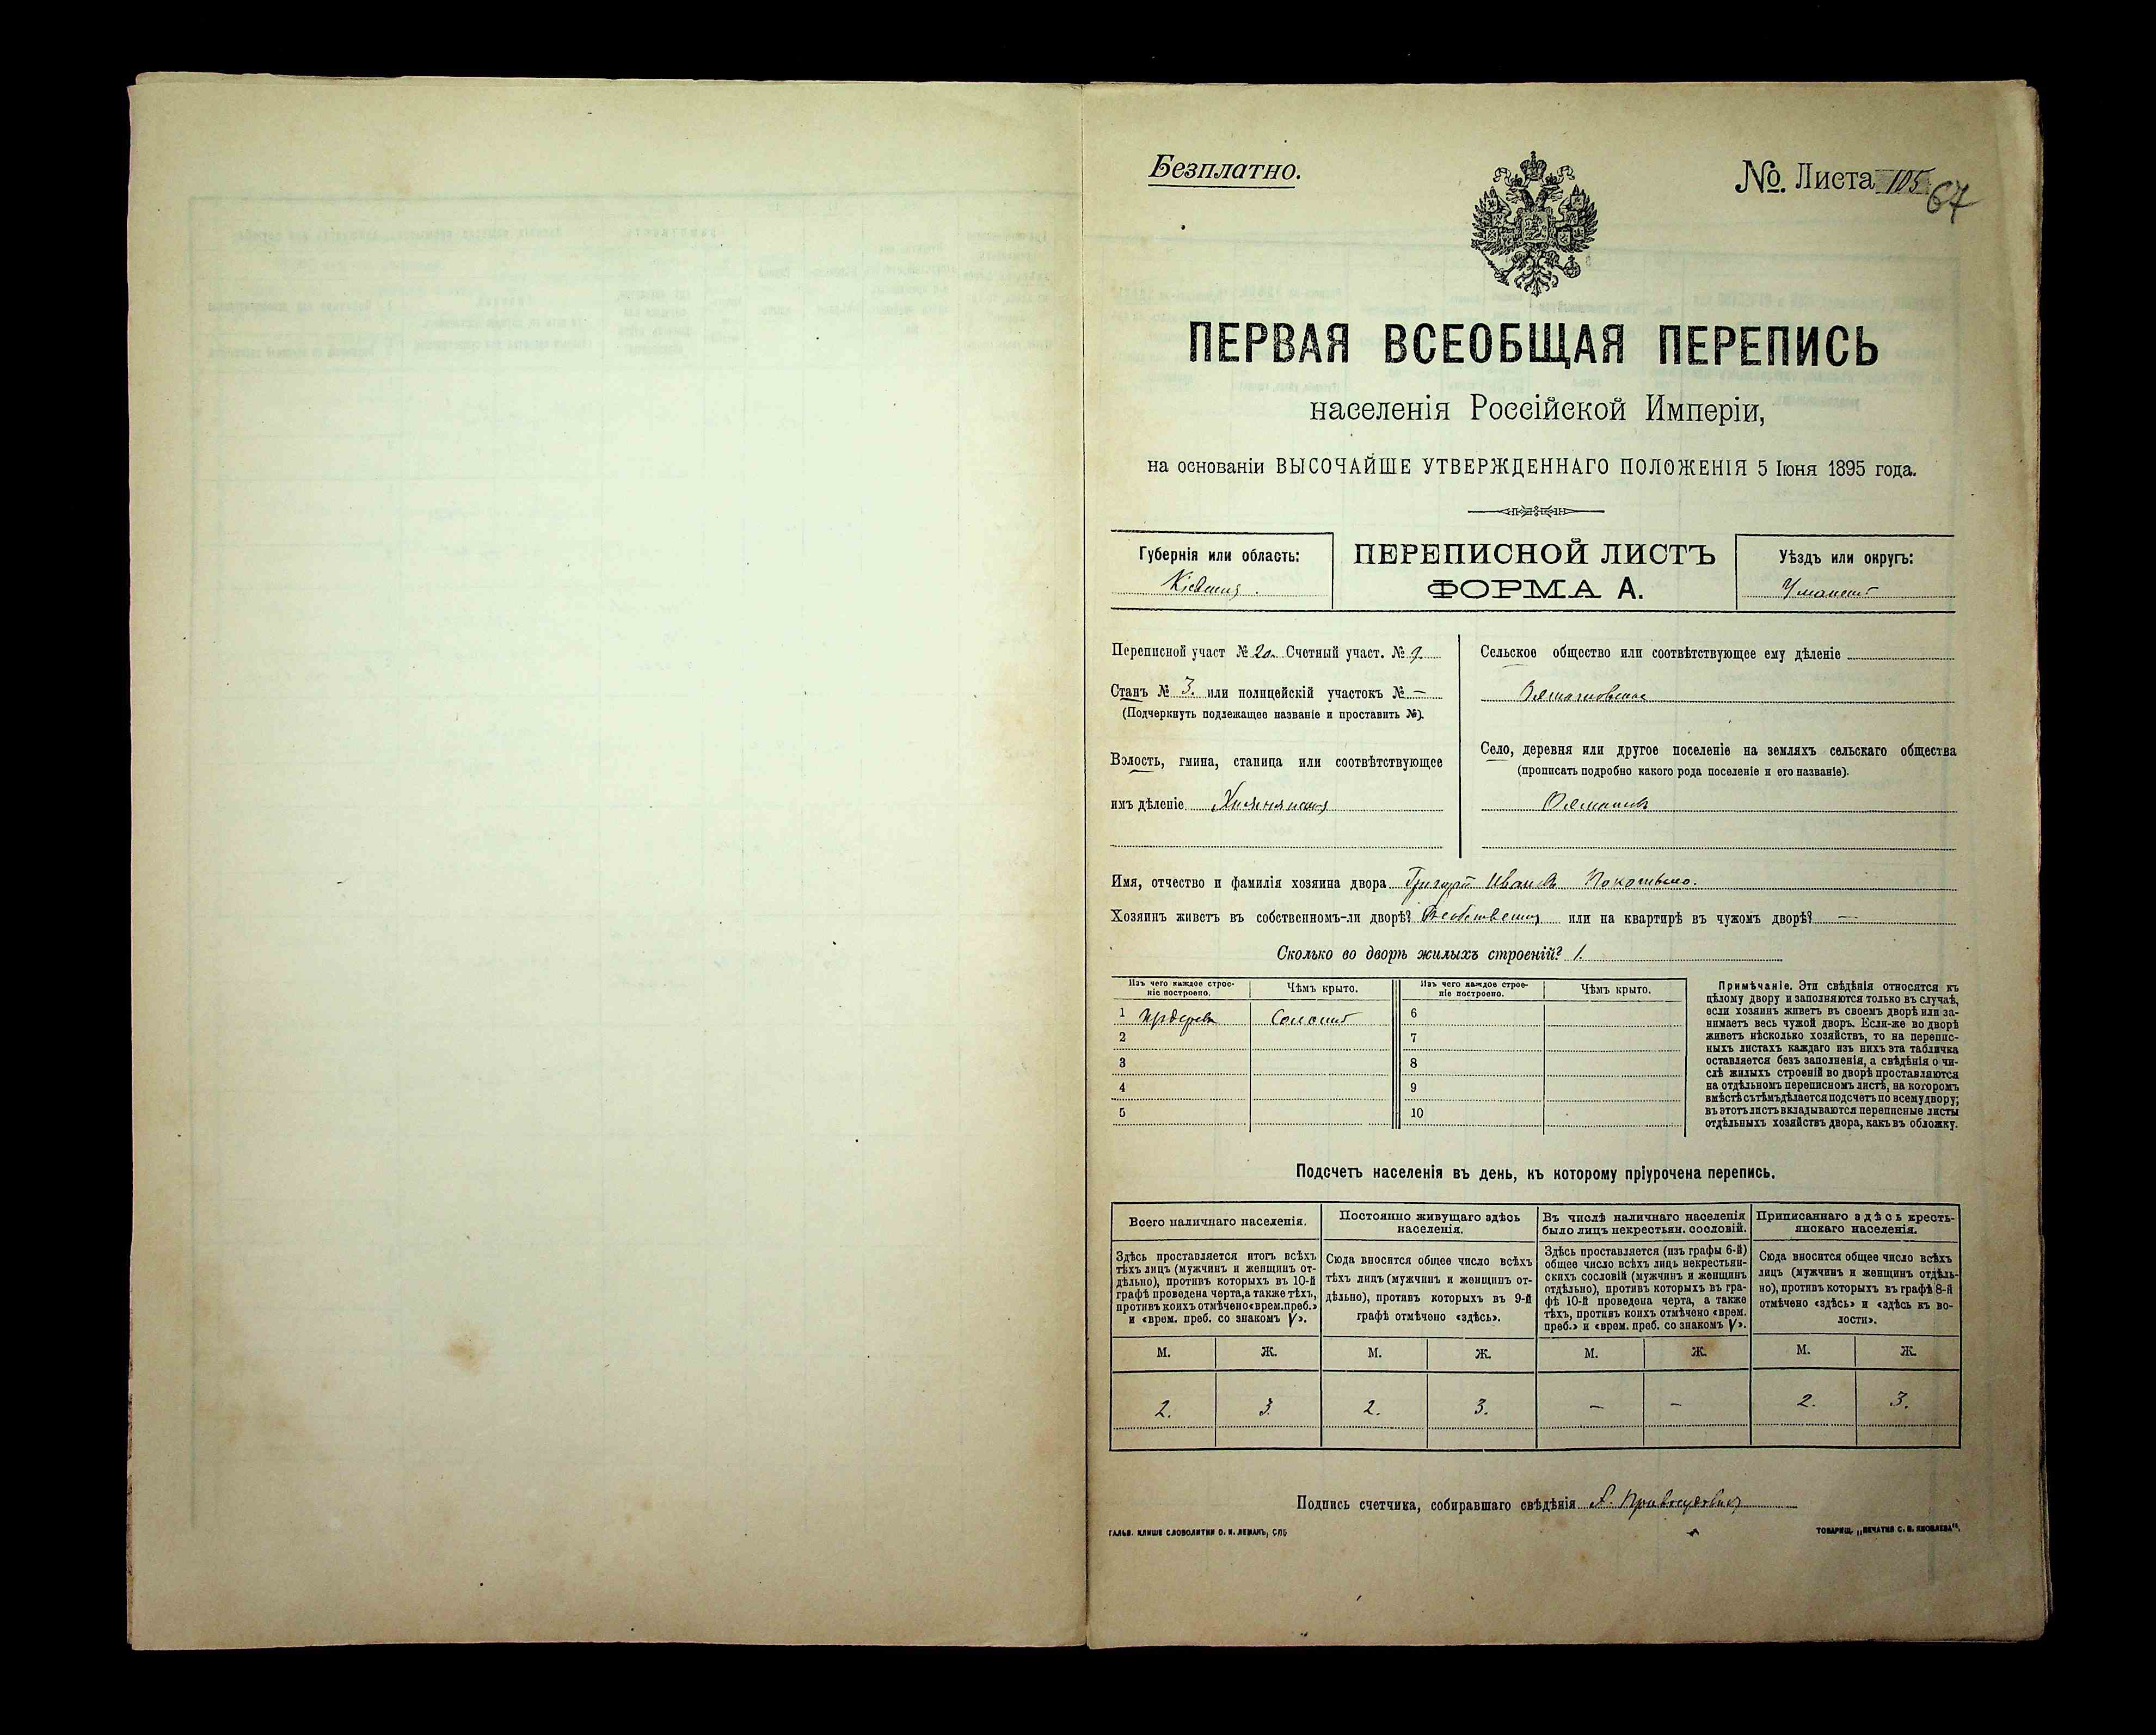 Безплатно.
№. Листа 105
67
ПЕРВАЯ ВСЕОБЩАЯ ПЕРЕПИСЬ
населенія Россійской Имперіи,
на основаніи ВЫСОЧАЙШЕ УТВЕРЖДЕННАГО ПОЛОЖЕНІЯ 5 Іюня 1895 года.
Губернія или область:
Кіевская
ПЕРЕПИСНОЙ ЛИСТЪ
ФОРМА А.
Уѣздъ или округъ:
Уманскій
Переписной участ № 20. Счетный участ. № 9.
Станъ № 3. или полицейскій участокъ № —
(Подчеркнуть подлежащее названіе и проставить №).
Волость, гмина, станица или соотвѣтствующее
имъ дѣленіе
Сельское общество или соотвѣтствующее ему дѣленіе
Село, деревня или другое поселеніе на земляхъ сельскаго общества
(прописать подробно какого рода поселеніе и его названіе).
Имя, отчество и фамилія хозяина двора Григорій Ивановъ Покотыло.
Хозяинъ живетъ въ собственномъ-ли дворѣ? или на квартирѣ въ чужомъ дворѣ? —
Сколько во дворѣ жилыхъ строеній? 1.
Изъ чего каждое строе-
ніе построено.
Чѣмъ крыто.
Изъ чего каждое строе-
ніе построено.
Чѣмъ крыто.
1 Изъ дерева Соломой 6
2 7
3 8
4 9
5 10
Примѣчаніе. Эти свѣдѣнія относятся къ
цѣлому двору и заполняются только въ случаѣ,
если хозяинъ живетъ въ своемъ дворѣ или за-
нимаетъ весь чужой дворъ. Если-же во дворѣ
живетъ нѣсколько хозяйствъ, то на перепис-
ныхъ листахъ каждаго изъ нихъ эта табличка
оставляется безъ заполненія, а свѣдѣнія о чи-
слѣ жилыхъ строеній во дворѣ проставляются
на отдѣльномъ переписномъ листѣ, на которомъ
вмѣстѣ съ тѣмъ дѣлается подсчетъ по всему двору;
въ этотъ листъ вкладываются переписные листы
отдѣльныхъ хозяйствъ двора, какъ въ обложку.
Подсчетъ населенія въ день, къ которому пріурочена перепись.
Всего наличнаго населенія.
Здѣсь проставляется итогъ всѣхъ
тѣхъ лицъ (мужчинъ и женщинъ от-
дѣльно), противъ которыхъ въ 10-й
графѣ проведена черта, а также тѣхъ,
противъ коихъ отмѣчено «врем. преб.»
и «врем. преб. со знакомъ V».
Постоянно живущаго здѣсь
населенія.
Сюда вносится общее число всѣхъ
тѣхъ лицъ (мужчинъ и женщинъ от-
дѣльно), противъ которыхъ въ 9-й
графѣ отмѣчено «здѣсь».
Въ числѣ наличнаго населенія
было лицъ некрестьян. сословій.
Здѣсь проставляется (изъ графы 6-й)
общее число всѣхъ лицъ некрестьян-
скихъ сословій (мужчинъ и женщинъ
отдѣльно), противъ которыхъ въ гра-
фѣ 10-й проведена черта, а также
тѣхъ, противъ коихъ отмѣчено «врем.
преб.» и «врем. преб. со знакомъ V».
Приписаннаго здѣсь кресть-
янскаго населенія.
Сюда вносится общее число всѣхъ
лицъ (мужчинъ и женщинъ отдѣль-
но), противъ которыхъ въ графѣ 8-й
отмѣчено «здѣсь» и «здѣсь въ во-
лости».
М. Ж. М. Ж. М. Ж. М. Ж.
2. 3. 2. 3. — — 2. 3.
Подпись счетчика, собиравшаго свѣдѣнія
ГАЛЬВ. КЛИШЕ СЛОВОЛИТНИ О. И. ЛЕМАНЪ, СПБ
ТОВАРИЩ. „ПЕЧАТНЯ С. П. ЯКОВЛЕВА“.